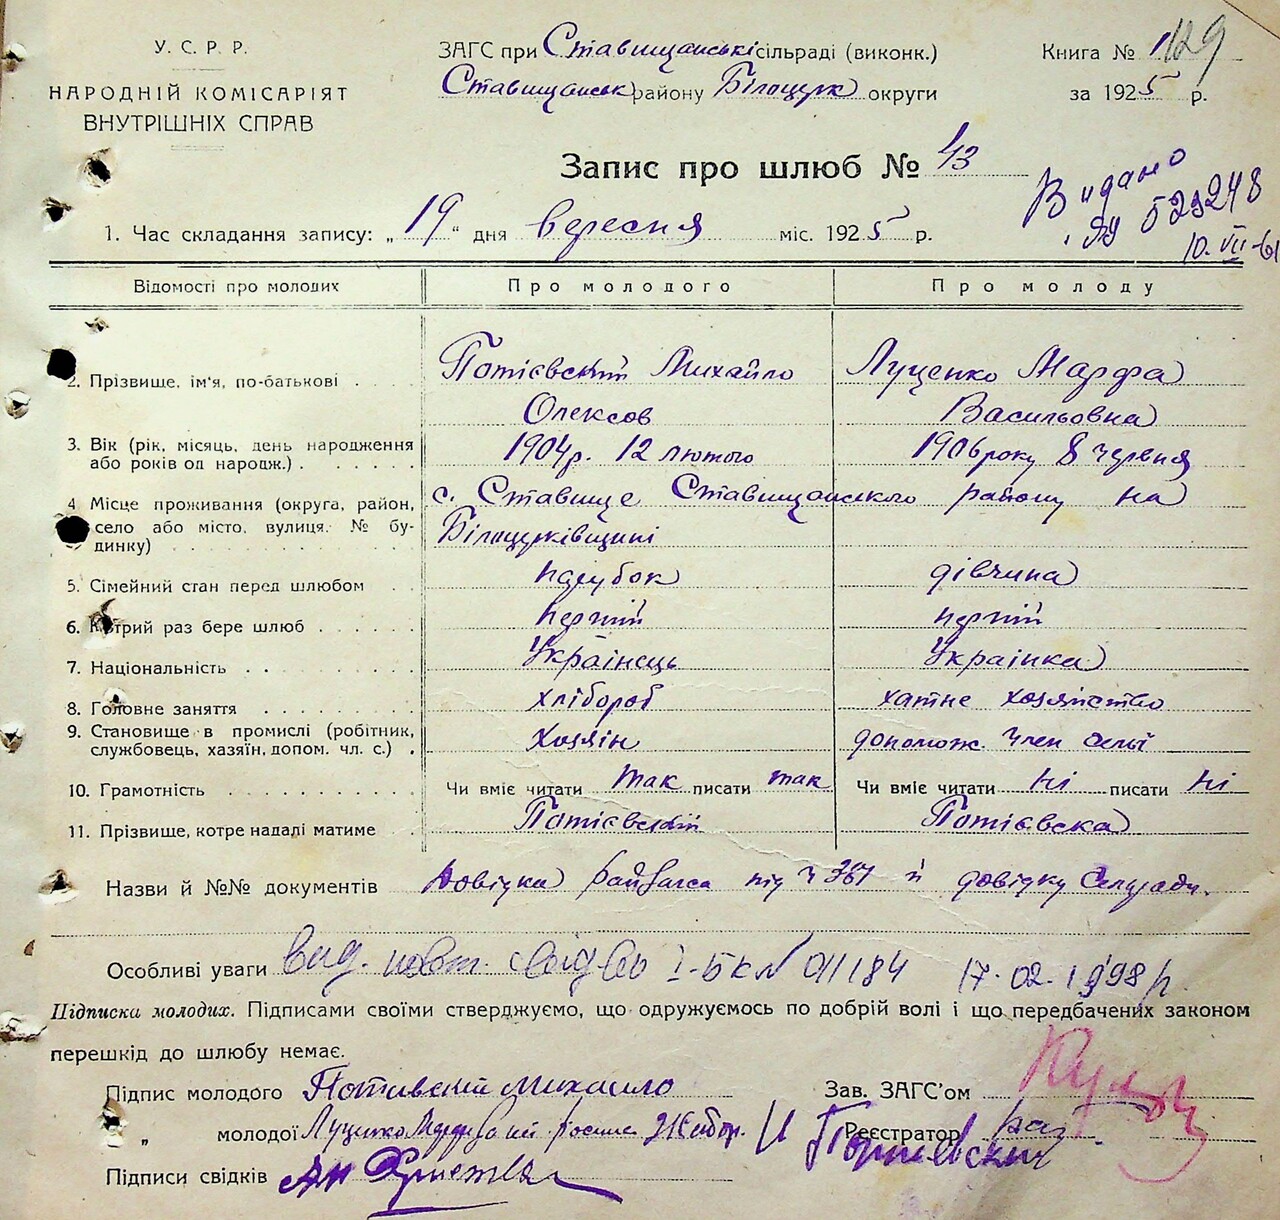 У. С. Р. Р.
НАРОДНІЙ КОМІСАРІЯТ
ВНУТРІШНІХ СПРАВ
ЗАГС при Ставищанські сільраді (виконк.)
Ставищанськ району Білоцерк округи
Книга № 1 129
за 1925 р.
Запис про шлюб № 43
Видано
ЯЯ 529248
10. VII-61
1. Час складання запису: „19“ дня вересня міс. 1925 р.
Відомості про молодих Про молодого Про молоду
2. Прізвище, ім'я, по-батькові Потієвський Михайло Луценко Марфа
Олексов Васильовна
3. Вік (рік, місяць, день народження або років од народж.) 1904р. 12 лютого 1906 року 8 червня
4 Місце проживання (округа, район, село або місто, вулиця. № будинку) с. Ставище Ставищанського району на
Білоцерківщині
5. Сімейний стан перед шлюбом парубок дівчина
6. Котрий раз бере шлюб перший перший
7. Національність Українець Українка
8. Головне заняття хлібороб хатне хозяйство
9. Становище в промислі (робітник, службовець, хазяїн, допом. чл. с.) Хозяїн допомож. член сем'ї
10. Грамотність Чи вміє читати так писати так Чи вміє читати ні писати ні
11. Прізвище, котре надалі матиме Потієвський Потієвска
Назви й №№ документів Довідка райзагса під ч 367 й довідку Сельради.
Особливі уваги вид. повт. свід-во І-БК № 011184 17.02.1998 р.
Підписка молодих. Підписами своїми стверджуємо, що одружуємось по добрій волі і що передбачених законом
перешкід до шлюбу немає.
Підпис молодого Потивский михаило
Зав. ЗАГС'ом
„ молодої Луценко Марфа
Реєстратор
Підписи свідків